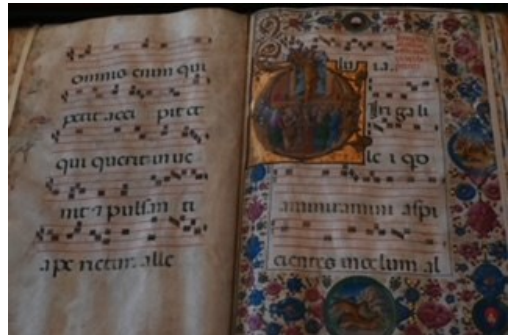 omnis enim qui
petit acci pit et
qui querit in ue
nit ⁊ pulsan ti
ape rietur alle
lu ia.
iri gali
le i qd
ammiramini aspi
cientes in celum al